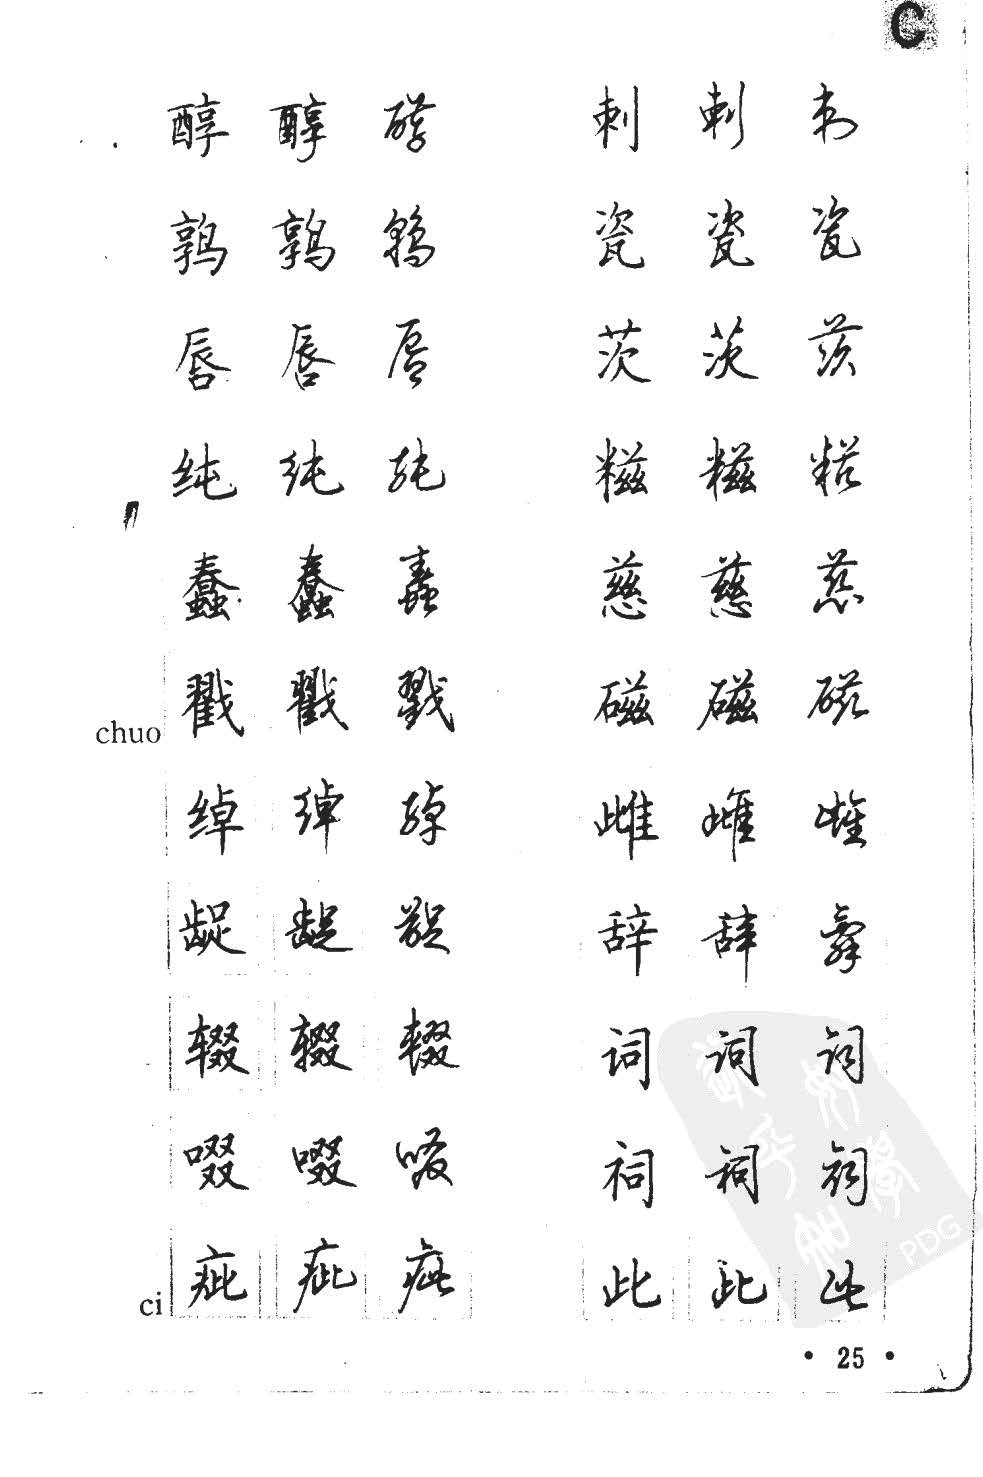 C
醇 醇 醇 刺 刺 刺
鹑 鹑 鹑 瓷 瓷 瓷
唇 唇 唇 茨 茨 茨
纯 纯 纯 糍 糍 糍
蠢 蠢 蠢 慈 慈 慈
chuo 戳 戳 戳 磁 磁 磁
绰 绰 绰 雌 雌 雌
龊 龊 龊 辞 辞 辞
辍 辍 辍 词 词 词
啜 啜 啜 祠 祠 祠
ci 疵 疵 疵 此 此 此
PDG
• 25 •